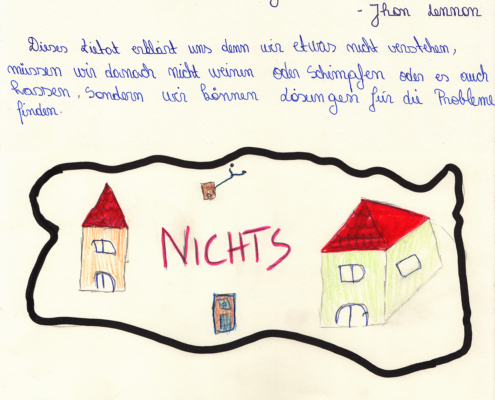 - Jhon Lennon
Dieses Zietat erklärt uns denn wir etwas nicht verstehen,
müssen wir danach nicht weinen oder Schimpfen oder es auch
hassen, Sondern wir können Lösungen für die Probleme
finden.
NICHTS